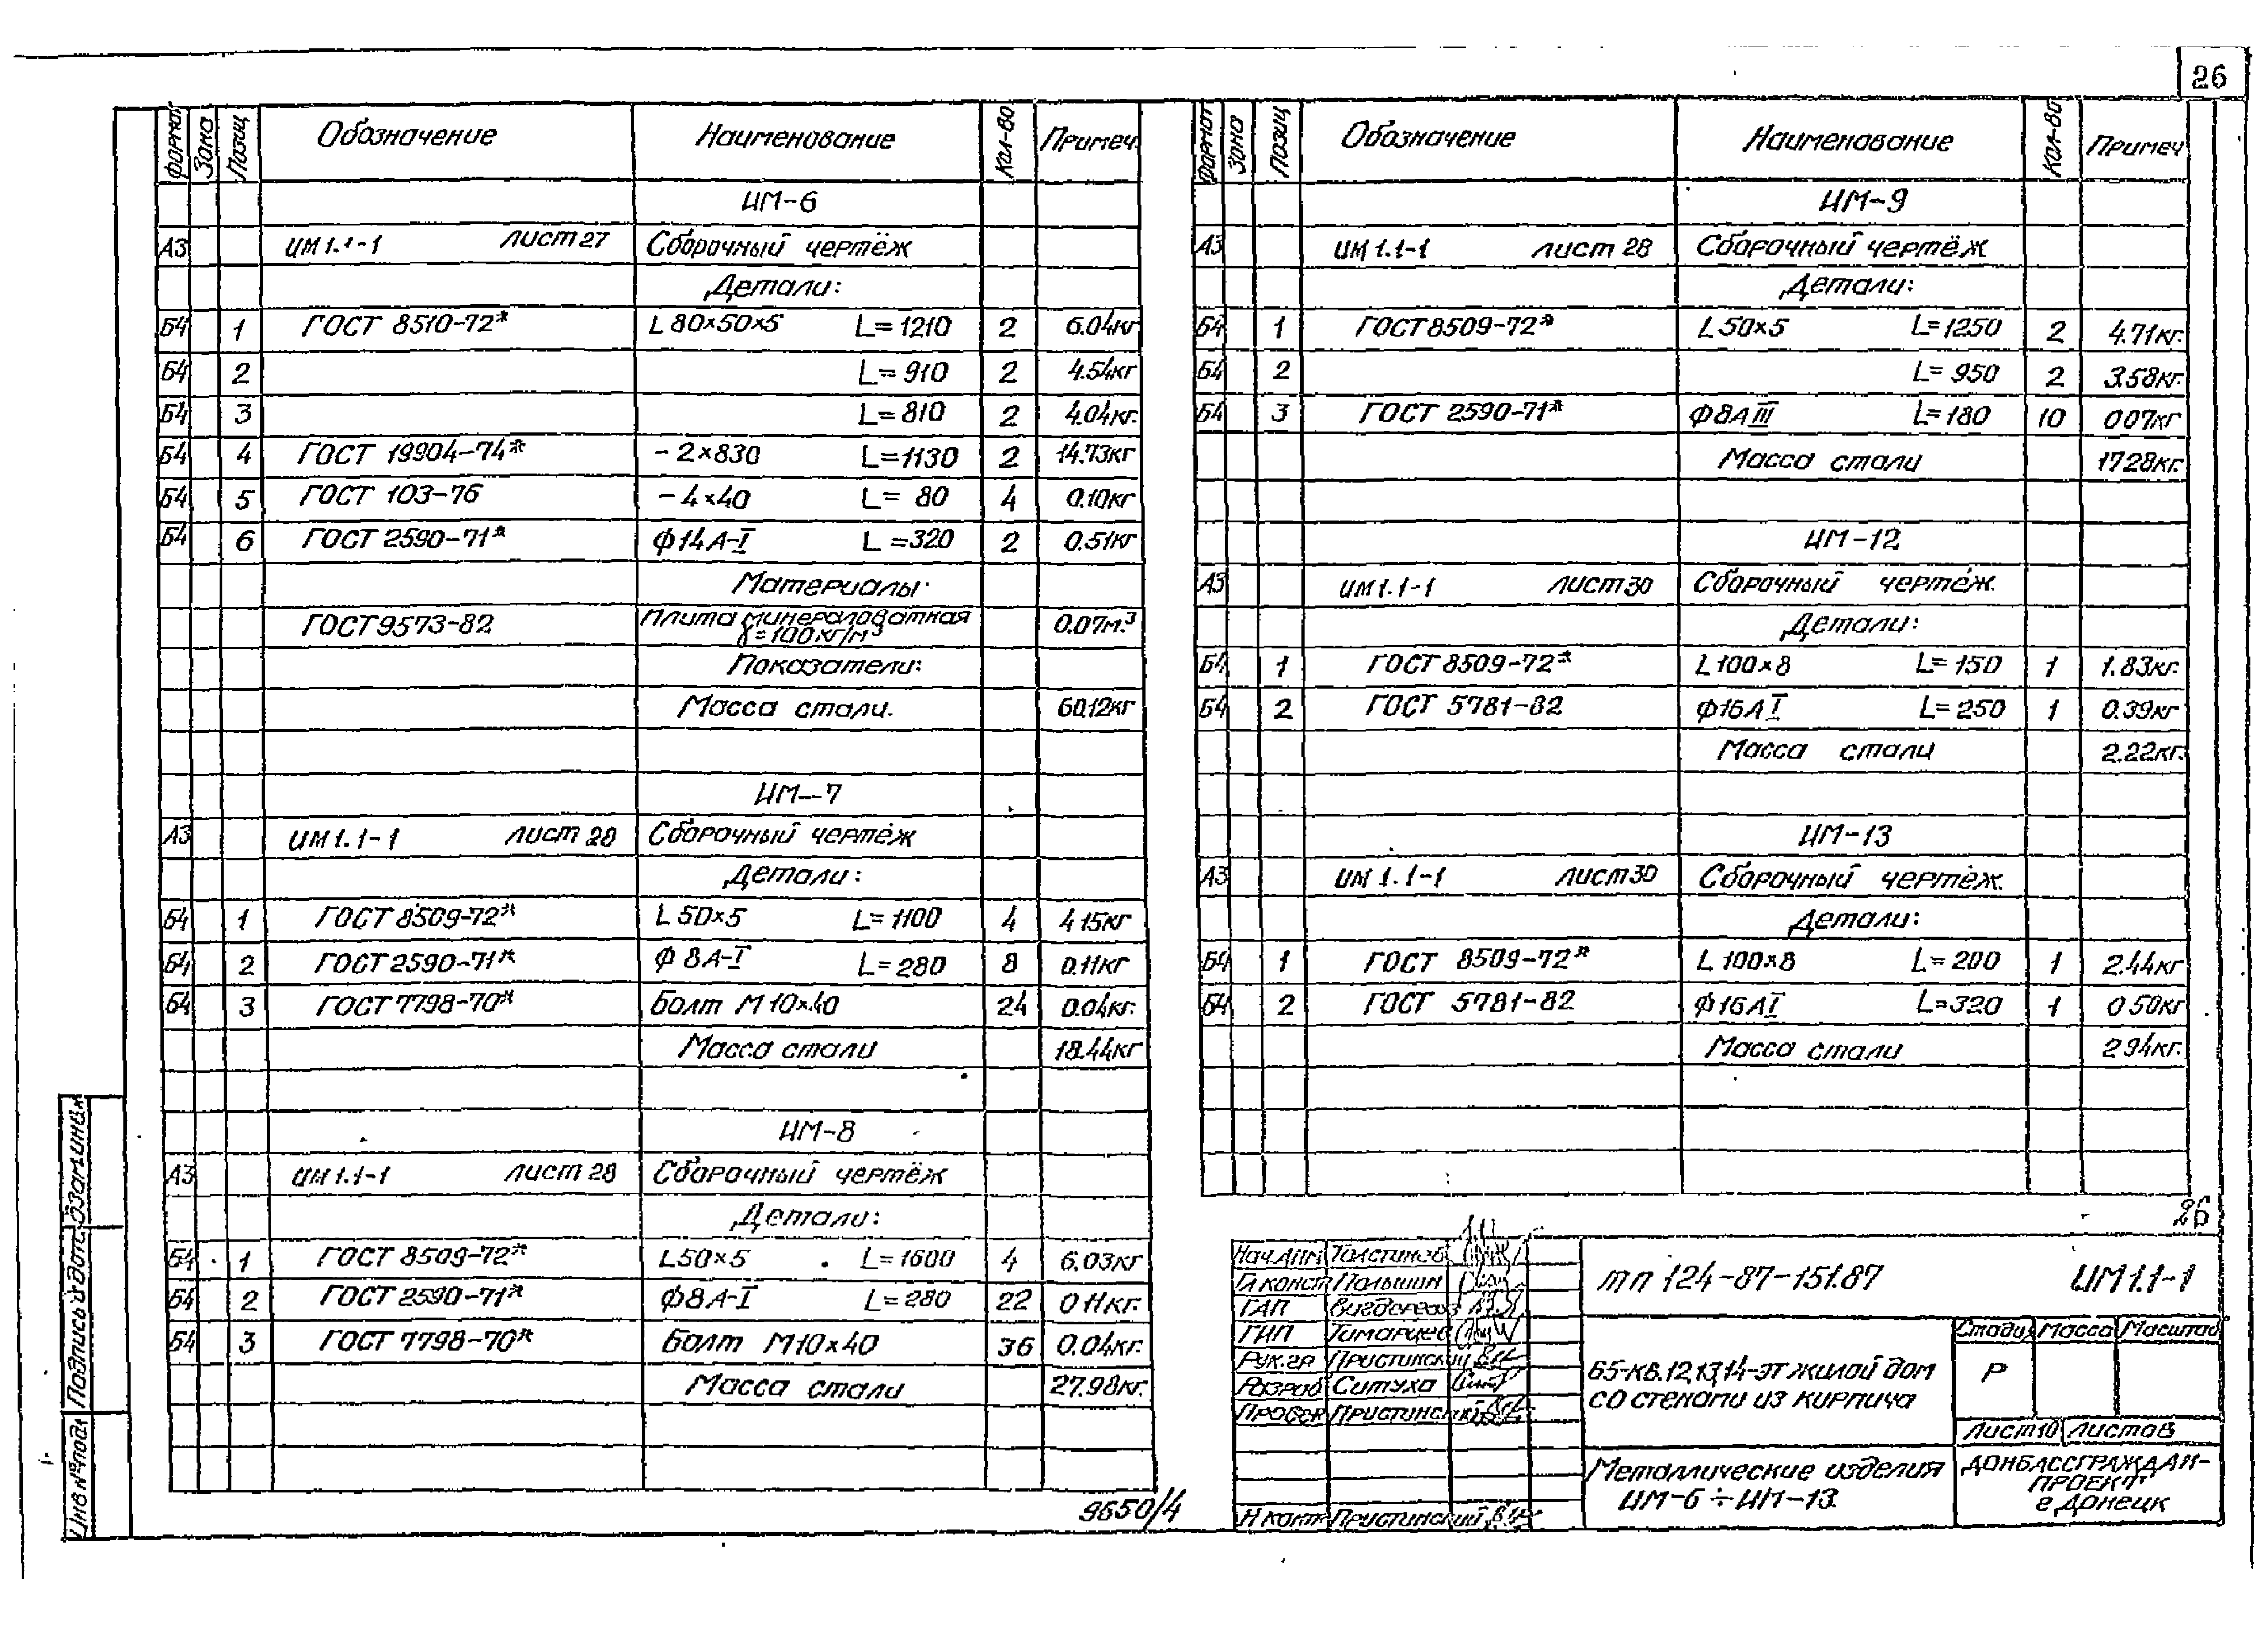 26
Формат Зона Позиц Обозначение Наименование Кол-во Примеч.
ИМ-6
А3 ИМ 1.1-1 лист 27 Сборочный чертёж
Детали:
Б4 1 ГОСТ 8510-72* L 80×50×5 L=1210 2 6.04кг
Б4 2 L=910 2 4.54кг
Б4 3 L=810 2 4.04кг.
Б4 4 ГОСТ 19904-74* -2×830 L=1130 2 14.73кг
Б4 5 ГОСТ 103-76 -4×40 L= 80 4 0.10кг
Б4 6 ГОСТ 2590-71* Ф14А-I L=320 2 0.51кг
Материалы:
ГОСТ 9573-82 Плита минераловатная 0.07м.³
γ=100кг/м³
Показатели:
Масса стали. 60.12кг
ИМ-7
А3 ИМ 1.1-1 лист 28 Сборочный чертёж
Детали:
Б4 1 ГОСТ 8509-72* L 50×5 L=1100 4 4 15кг
Б4 2 ГОСТ 2590-71* Ф 8А-I L=280 8 0.11кг
Б4 3 ГОСТ 7798-70* Болт М10×40 24 0.04кг.
Масса стали 18.44кг
ИМ-8
А3 ИМ 1.1-1 лист 28 Сборочный чертёж
Детали:
Б4 1 ГОСТ 8509-72* L50×5 L=1600 4 6.03кг
Б4 2 ГОСТ 2590-71* Ф8А-I L=280 22 0 11кг.
Б4 3 ГОСТ 7798-70* Болт М10×40 36 0.04кг.
Масса стали 27.98кг.
Формат Зона Позиц Обозначение Наименование Кол-во Примеч
ИМ-9
А3 ИМ 1.1-1 лист 28 Сборочный чертёж
Детали:
Б4 1 ГОСТ 8509-72* L 50×5 L=1250 2 4.71кг.
Б4 2 L= 950 2 3.58кг.
Б4 3 ГОСТ 2590-71* Ф8АIII L=180 10 0 07кг
Масса стали 17 28кг.
ИМ-12
А3 ИМ 1.1-1 лист 30 Сборочный чертёж.
Детали:
Б4 1 ГОСТ 8509-72* L 100×8 L=150 1 1.83кг.
Б4 2 ГОСТ 5781-82 Ф16АI L=250 1 0.39кг
Масса стали 2.22кг.
ИМ-13
А3 ИМ 1.1-1 лист 30 Сборочный чертёж.
Детали:
Б4 1 ГОСТ 8509-72* L 100×8 L=200 1 2.44кг
Б4 2 ГОСТ 5781-82 Ф16АI L=320 1 0 50кг
Масса стали 2 94кг.
26
Нач.АПМ Толстиков
Гл констр Полышин
ГАП
ГИП
Рук.гр Пристинский
Разраб Ситуха
Провер Пристинский
Н контр Пристинский
тп 124-87-151.87 ИМ1.1-1
65-кв.12,13,14-эт жилой дом
со стенами из кирпича
Стадия Масса Масштаб
Р
Лист 10 Листов
Металлические изделия
ИМ-6÷ИМ-13.
ДОНБАССГРАЖДАН-
ПРОЕКТ
г Донецк
9650/4
Инв №подл Подпись и дата Взам инв №